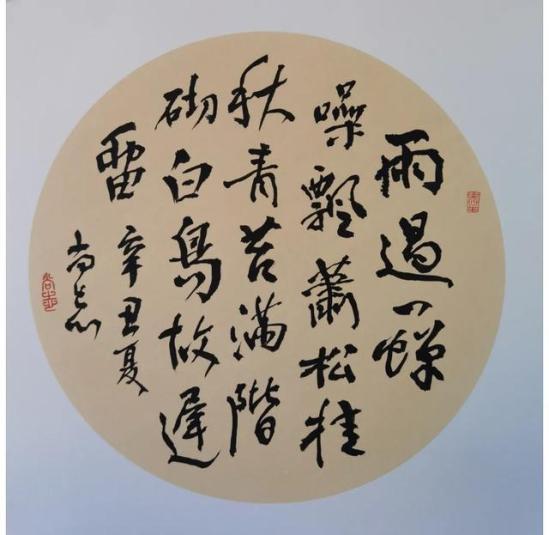 雨過一蟬
噪飄蕭松桂
秋青苔滿階
砌白鳥故遲
畱 辛丑夏
尚志